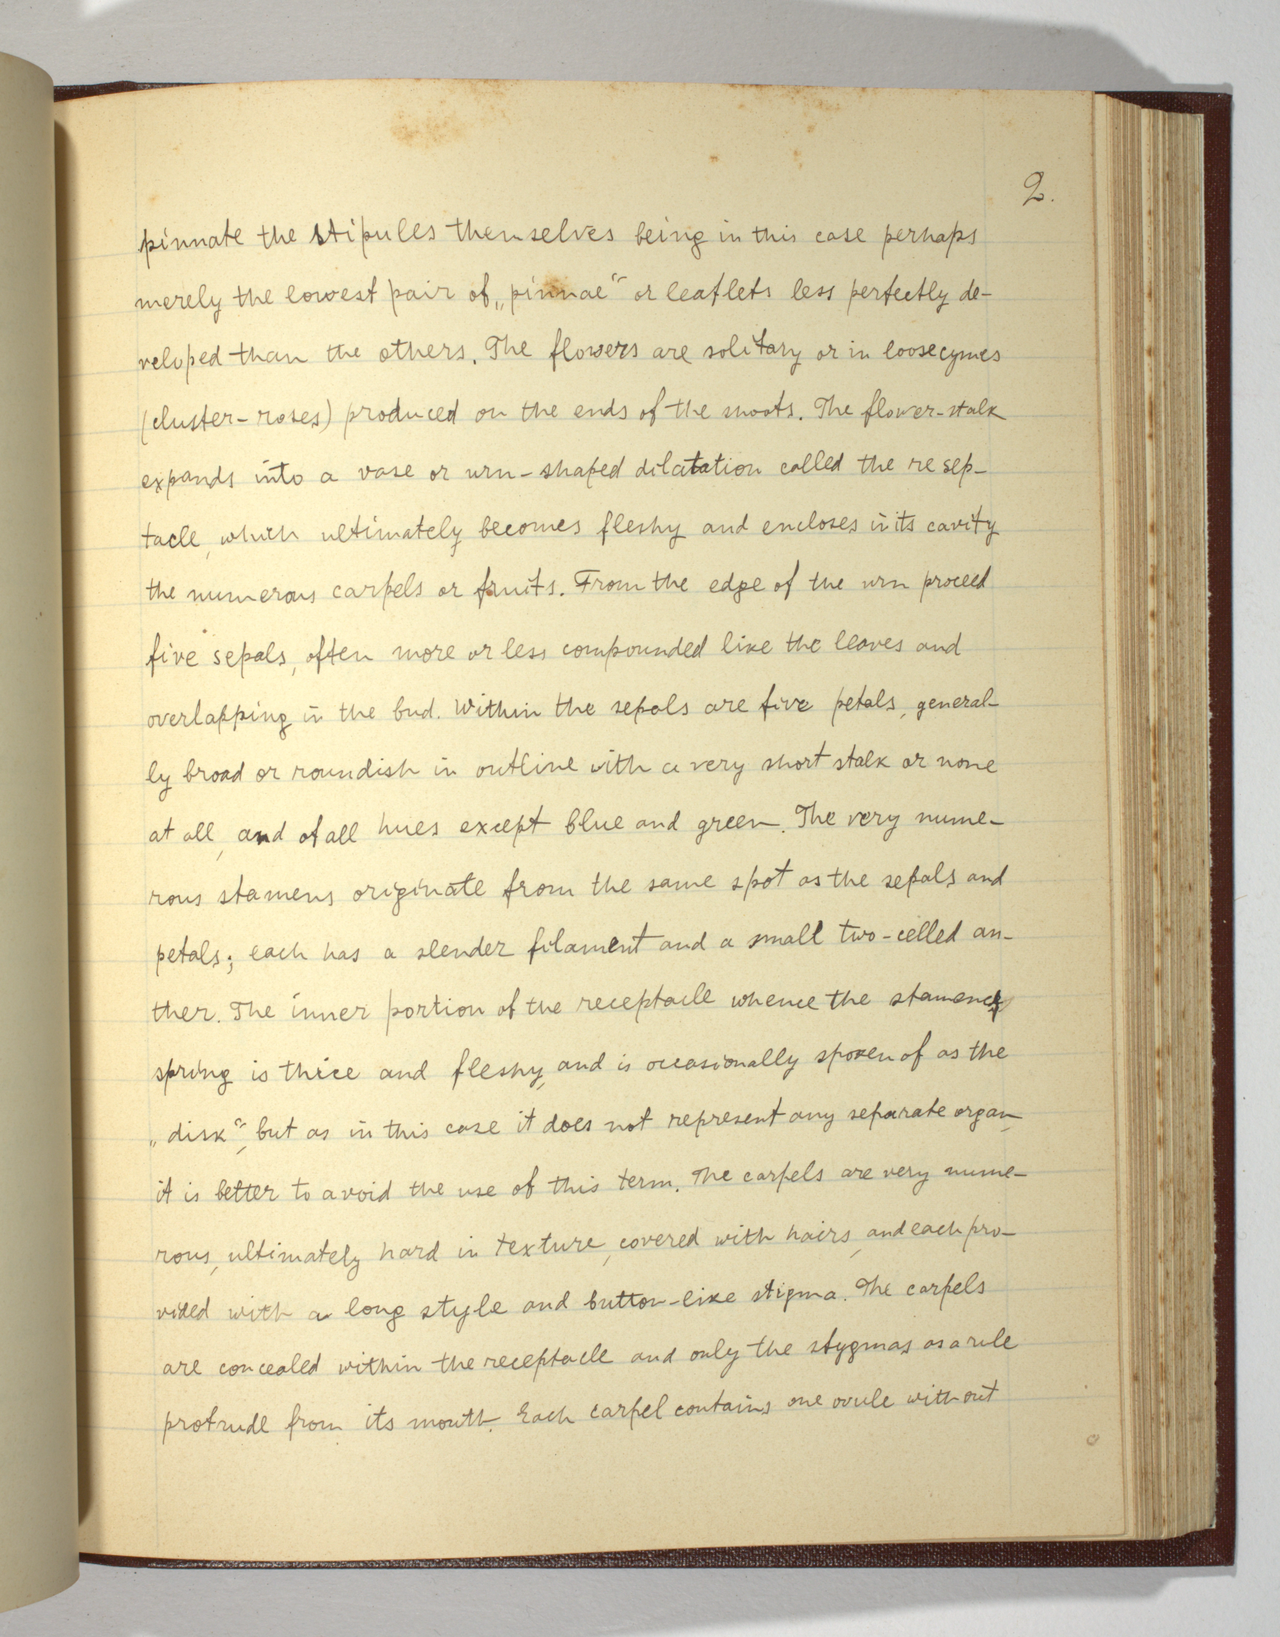 2.
pinnate the stipules themselves being in this case perhaps
merely the lowest pair of „pinnae“ or leaflets less perfectly de-
veloped than the others. The flowers are solitary or in loose cymes
(cluster-roses) produced on the ends of the shoots. The flower-stalk
expands into a vase or urn-shaped dilatation called the resep-
tacle, which ultimately becomes fleshy and encloses in its cavity
the numerous carpels or fruits. From the edge of the urn proceed
five sepals, often more or less compounded like the leaves and
overlapping in the bud. Within the sepals are five petals, general-
ly broad or roundish in outline with a very short stalk or none
at all, and of all hues except blue and green. The very nume-
rous stamens originate from the same spot as the sepals and
petals; each has a slender filament and a small two-celled an-
ther. The inner portion of the receptacle whence the stamens
spring is thice and fleshy, and is occasionally spoken of as the
„disk“, but as in this case it does not represent any separate organ,
it is better to avoid the use of this term. The carpels are very nume-
rous, ultimately hard in texture, covered with hairs, and each pro-
vided with a long style and button-like stigma. The carpels
are concealed within the receptacle and only the stygmas as a rule
protrude from its mouth. Each carpel contains one ovule without